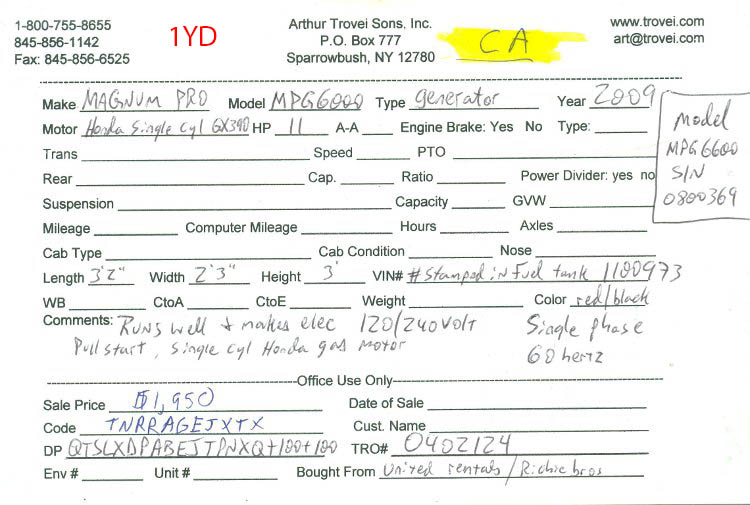 1-800-755-8655
845-856-1142
Fax: 845-856-6525
1YD
Arthur Trovei Sons, Inc.
P.O. Box 777
Sparrowbush, NY 12780
CA
www.trovei.com
art@trovei.com
Make MAGNUM PRO Model MPG6000 Type generator Year 2009
Motor Honda Single Cyl GX390 HP 11 A-A Engine Brake: Yes No Type:
Model
MPG6600
S/N
0800369
Trans Speed PTO
Rear Cap. Ratio Power Divider: yes no
Suspension Capacity GVW
Mileage Computer Mileage Hours Axles
Cab Type Cab Condition Nose
Length 3'2" Width 2'3" Height 3' VIN# #Stamped in Fuel tank 1100973
WB CtoA CtoE Weight Color red/black
Comments: Runs well + makes elec 120/240 volt Single phase
Pull start, Single cyl Honda gas motor 60 hertz
Office Use Only
Sale Price $1,950 Date of Sale
Code TNRRAGEJXTX Cust. Name
DP QTSLXDPABEJTPNXQ+100+100 TRO# 0402124
Env # Unit # Bought From United rentals/Richie bros